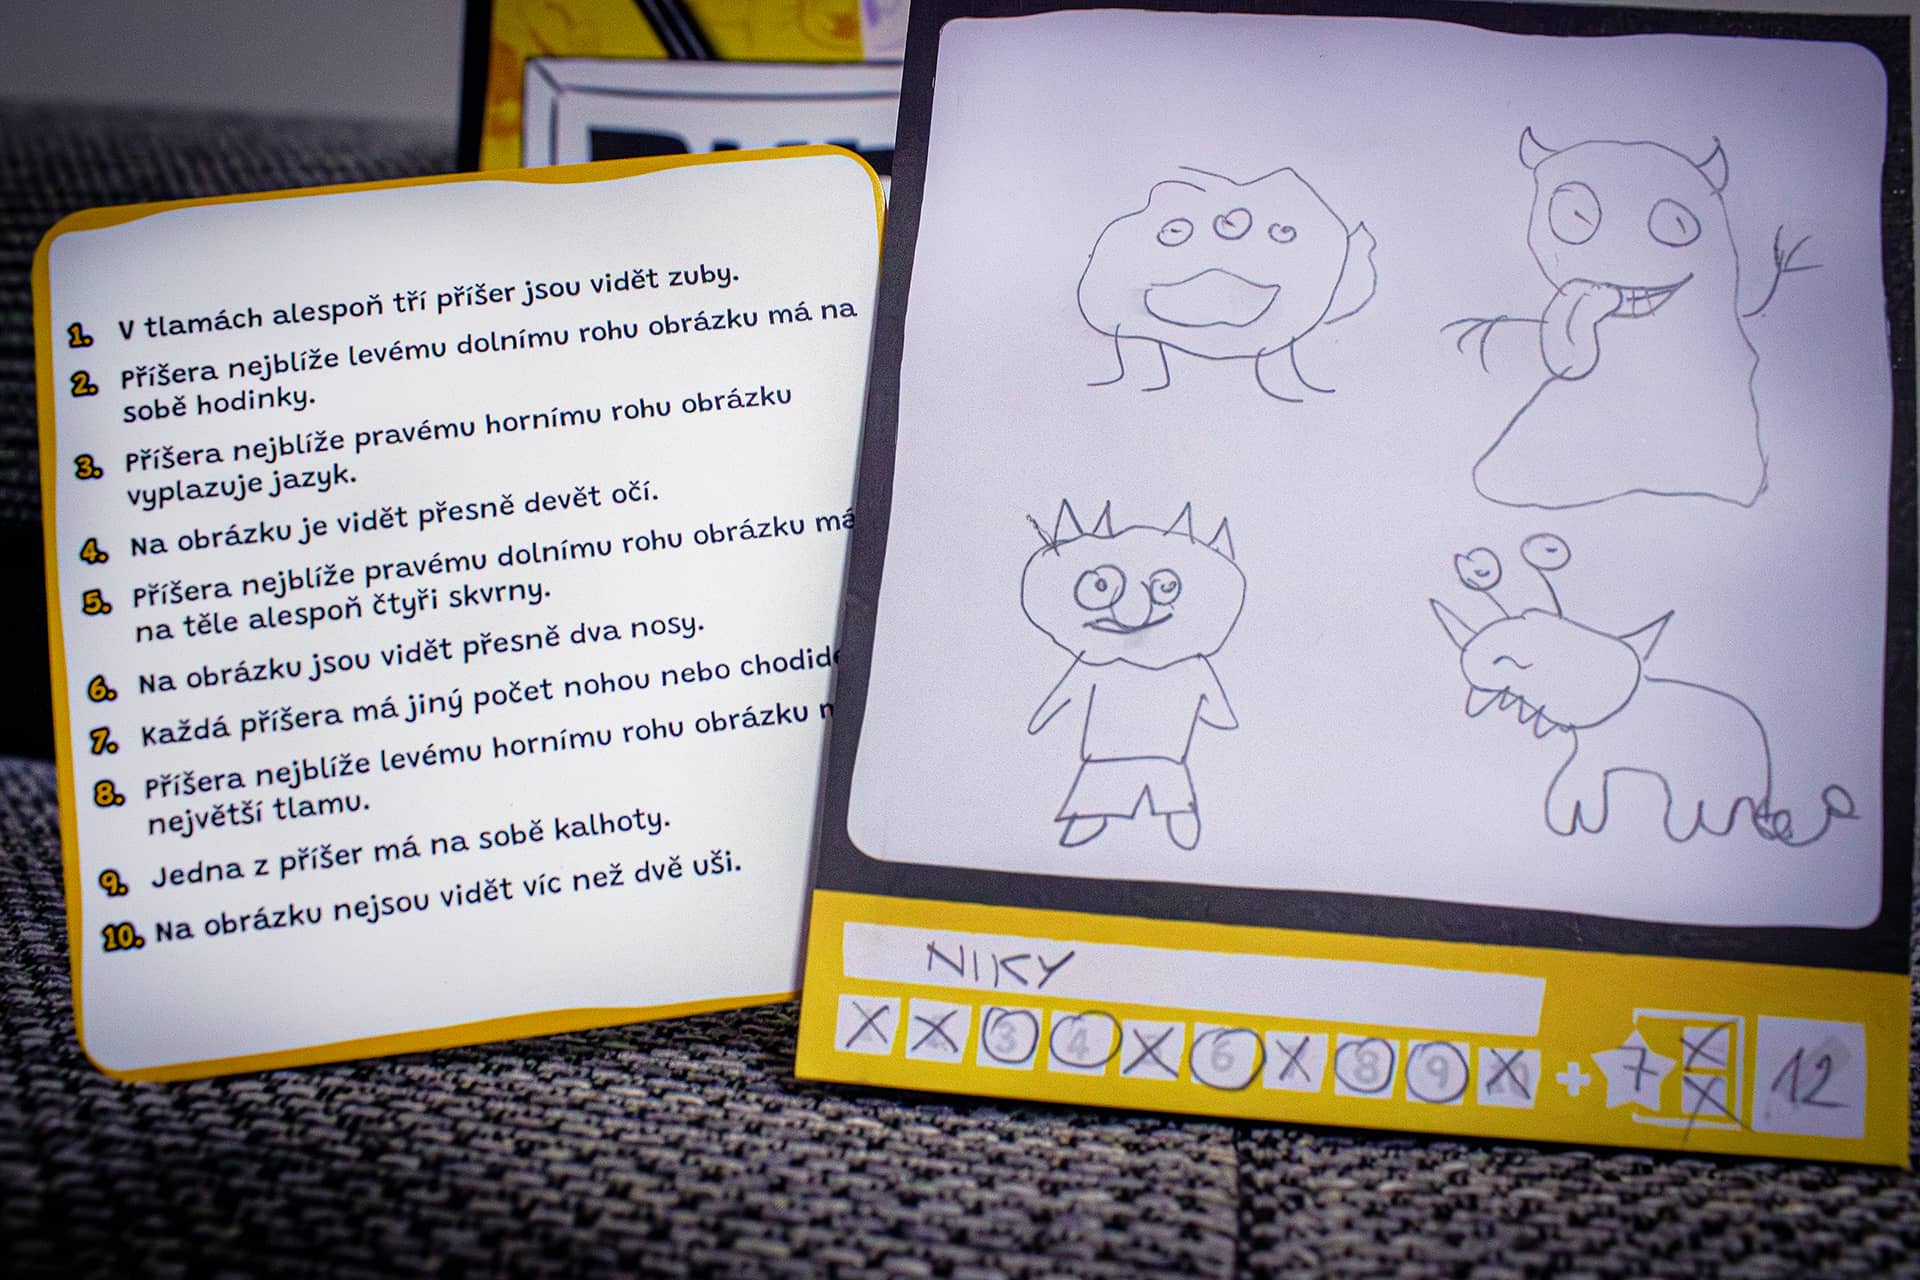 1. V tlamách alespoň tří příšer jsou vidět zuby.
2. Příšera nejblíže levému dolnímu rohu obrázku má na
sobě hodinky.
3. Příšera nejblíže pravému hornímu rohu obrázku
vyplazuje jazyk.
4. Na obrázku je vidět přesně devět očí.
5. Příšera nejblíže pravému dolnímu rohu obrázku má
na těle alespoň čtyři skvrny.
6. Na obrázku jsou vidět přesně dva nosy.
7. Každá příšera má jiný počet nohou nebo
8. Příšera nejblíže levému hornímu rohu obrázku
největší tlamu.
9. Jedna z příšer má na sobě kalhoty.
10. Na obrázku nejsou vidět víc než dvě uši.
NIKY
X X 3 4 X 6 X 8 9 X + 7 X X 12